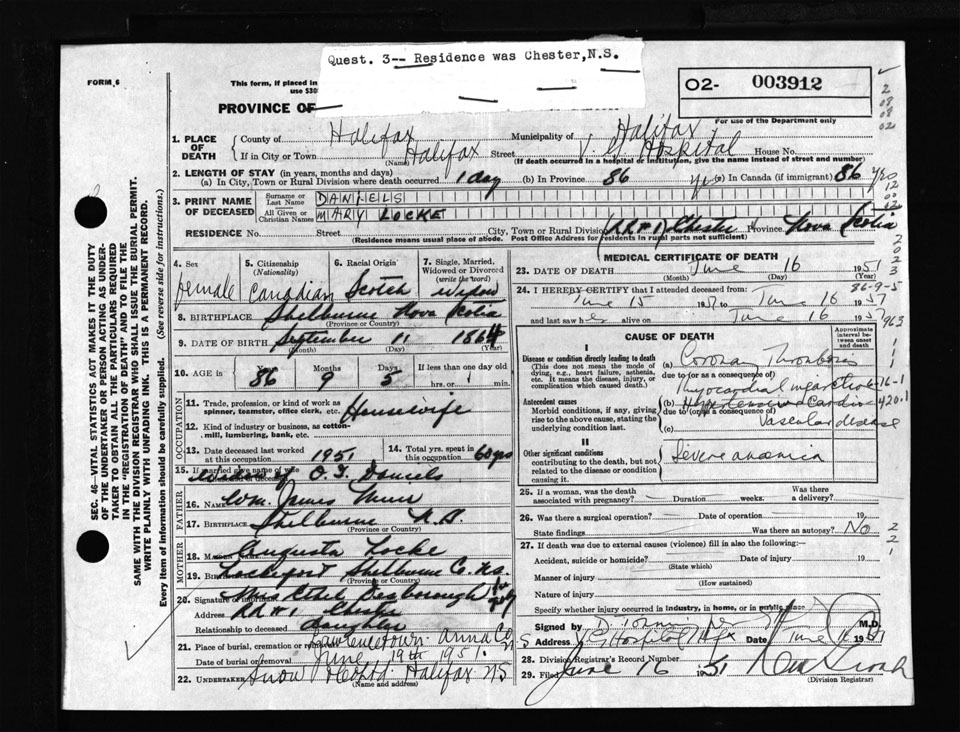 Quest. 3-- Residence was Chester,N.S.
FORM 6
This form, if placed in
use $30
PROVINCE OF
02- 003912
For use of the Department only
2
08
08
02
1. PLACE OF DEATH
County of Halifax Municipality of Halifax
If in City or Town Halifax Street V. G. Hospital House No.
(Name) (If death occurred in a hospital or institution, give the name instead of street and number)
2. LENGTH OF STAY (in years, months and days)
(a) In City, Town or Rural Division where death occurred 1 day (b) In Province 86 yrs (c) In Canada (if immigrant) 86 yrs
3. PRINT NAME OF DECEASED
Surname or Last Name DANIELS
All Given or Christian Names MARY LOCKE
RESIDENCE No. Street City, Town or Rural Division (RR#1) Chester Province Nova Scotia
(Residence means usual place of abode. Post Office Address for residents in rural parts not sufficient)
4. Sex female
5. Citizenship (Nationality) Canadian
6. Racial Origin Scotch
7. Single, Married, Widowed or Divorced (write the word) widow
8. BIRTHPLACE Shelburne Nova Scotia
(Province or Country)
9. DATE OF BIRTH September 11 1864
(Month) (Day) (Year)
10. AGE Years 86 Months 9 Days 5 If less than one day old
hrs. or min.
OCCUPATION
11. Trade, profession, or kind of work as spinner, teamster, office clerk, etc. Housewife
12. Kind of industry or business, as cotton-mill, lumbering, bank, etc.
13. Date deceased last worked at this occupation 1951
14. Total years spent in this occupation 60 yrs
15. If married give name of wife or husband of deceased
Widow of O. Daniels
FATHER
16. NAME Wm. James Muir
17. BIRTHPLACE Shelburne N.S.
(Province or Country)
MOTHER
18. MAIDEN NAME Augusta Locke
19. BIRTHPLACE Lockeport Shelburne Co. N.S.
(Province or Country)
20. Signature of informant Mrs Ethel Desborough
Address RR#1 Chester
Relationship to deceased daughter
21. Place of burial, cremation or removal Lawrencetown - Anna Co
Date of burial or removal June 19th 1951.
22. Undertaker Snow Halifax NS
(Name and address)
MEDICAL CERTIFICATE OF DEATH
23. DATE OF DEATH June 16 1951
(Month) (Day)
86-9-5
24. I HEREBY CERTIFY that I attended deceased from:
June 15 1951 to June 16 1951
and last saw her alive on June 16 1951
963
CAUSE OF DEATH
Approximate interval between onset and death
I
Disease or condition directly leading to death
(This does not mean the mode of dying, e.g., heart failure, asthenia, etc. It means the disease, injury, or complication which caused death.)
(a) Coronary Thrombosis
due to (or as a consequence of)
Myocardial infarction
Antecedent causes
Morbid conditions, if any, giving rise to the above cause, stating the underlying condition last.
(b) Hypertensive Cardio 420.1
due to (or as a consequence of)
Vascular disease
(c)
II
Other significant conditions
contributing to the death, but not related to the disease or condition causing it.
Severe anaemia
25. If a woman, was the death associated with pregnancy? Duration weeks. Was there a delivery?
26. Was there a surgical operation? Date of operation 19
State findings Was there an autopsy? No
27. If death was due to external causes (violence) fill in also the following:
Accident, suicide or homicide? Date of injury 19
(State which)
Manner of injury
(How sustained)
Nature of injury
Specify whether injury occurred in industry, in home, or in public place
Signed by M.D.
Address V G Hospital Hlfx Date June 16 1951
28. Division Registrar's Record Number
29. Filed June 16 1951
(Division Registrar)
SEC. 46—VITAL STATISTICS ACT MAKES IT THE DUTY
OF THE UNDERTAKER OR PERSON ACTING AS UNDER-
TAKER TO OBTAIN ALL THE PARTICULARS REQUIRED
IN THE "REGISTRATION OF DEATH" AND TO FILE THE
SAME WITH THE DIVISION REGISTRAR WHO SHALL ISSUE THE BURIAL PERMIT.
WRITE PLAINLY WITH UNFADING INK. THIS IS A PERMANENT RECORD.
Every item of information should be carefully supplied. (See reverse side for instructions.)